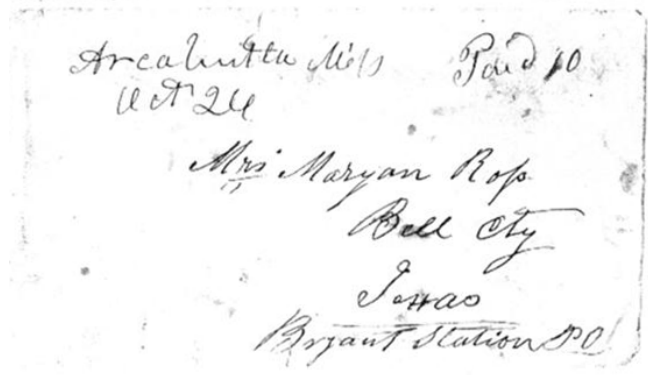 Arcabutta Miss Paid 10
Oct 24
Mrs Maryan Ross
Bell Cty
Texas
Bryant Station PO